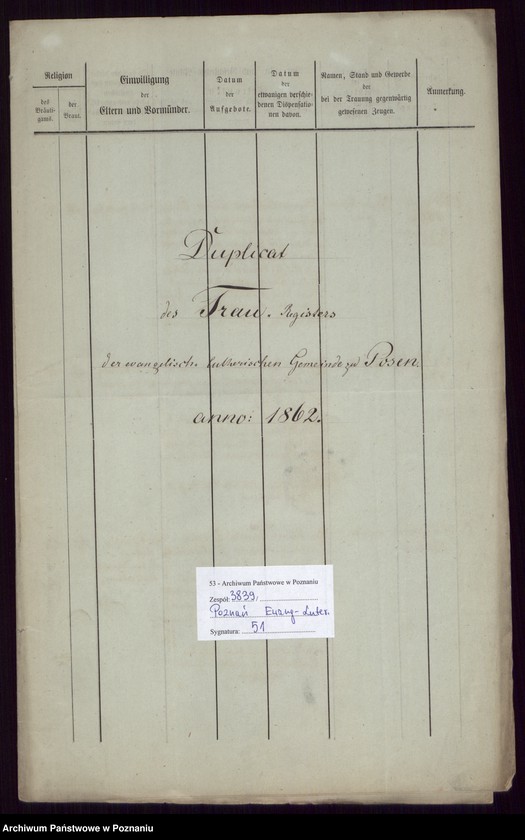 Religion
des
Bräuti-
gams.
der
Braut.
Einwilligung
der
Eltern und Vormünder.
Datum
der
Aufgebote.
Datum
der
etwanigen verschie-
denen Dispensatio-
nen davon.
Namen, Stand und Gewerbe
der
bei der Trauung gegenwärtig
gewesenen Zeugen.
Anmerkung.
Duplicat
des Trau-Registers
der evangelisch-lutherischen Gemeinde zu Posen.
anno: 1862.
53 - Archiwum Państwowe w Poznaniu
Zespół: 3839,
Poznań Ewang-Luter.
Sygnatura: 51
Archiwum Państwowe w Poznaniu